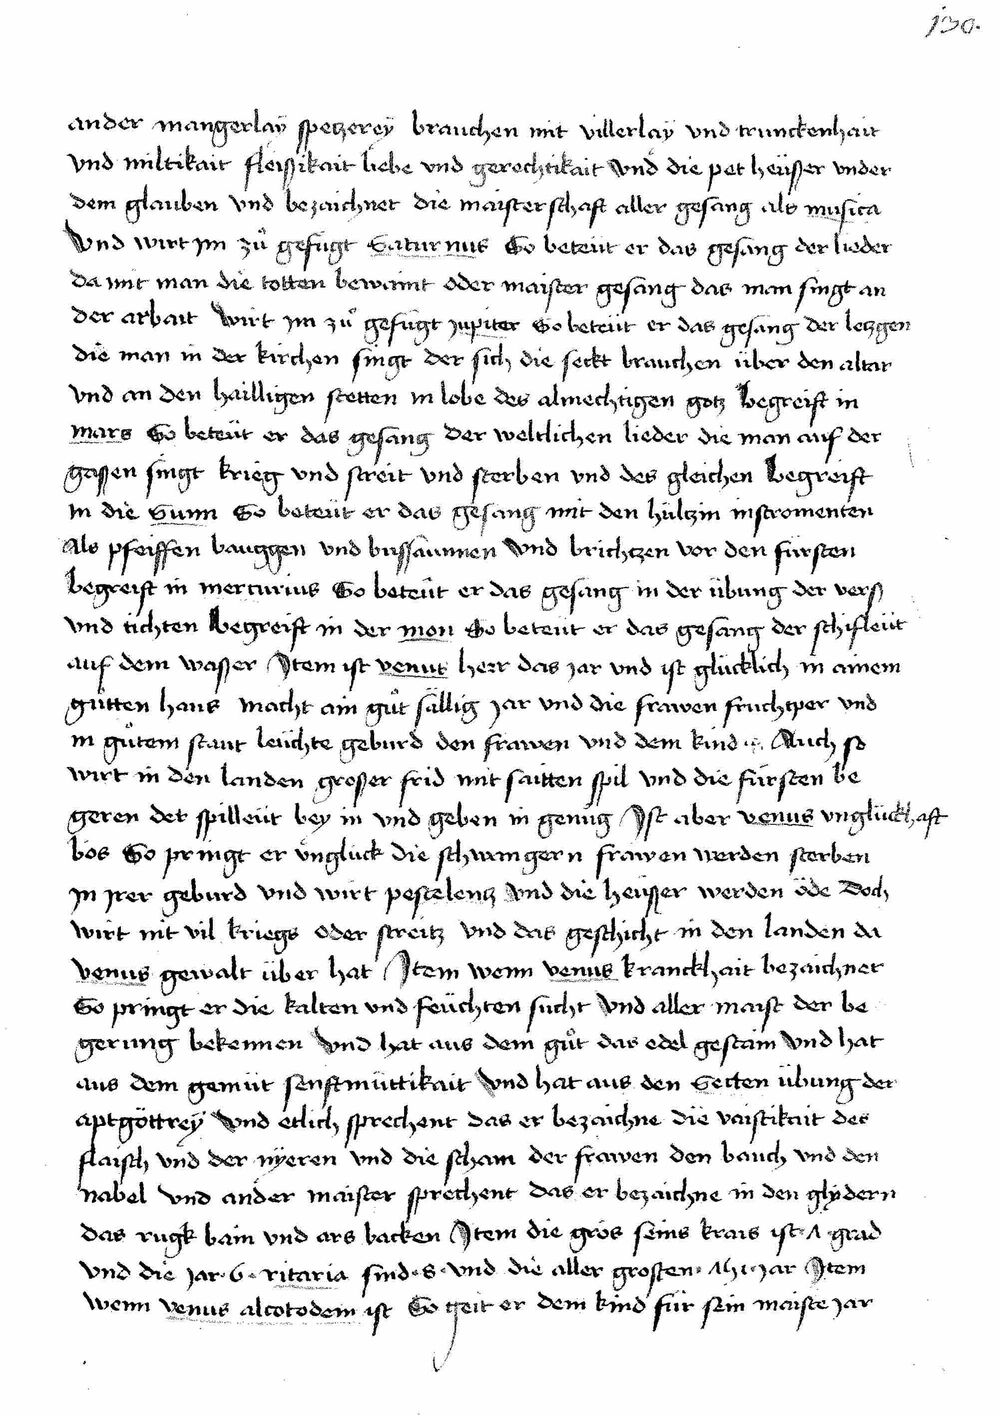 130.
ander mangerlaÿ spetzereÿ brauchen mit villerlaÿ und trunckenhait
und miltikait fleissikait liebe und gerechtikait Und die pet heüsser under
dem glauben und bezaichnet die maisterschaft aller gesang als musica
Und wirt im zů gefügt Saturnus So beteüt er das gesang der lieder
da mit man die totten bewaint oder maister gesang das man singt an
der arbait Wirt im zů gefügt Jupiter So beteüt er das gesang der letzgen
die man in der kirchen singt der sich die seckt brauchen über den altar
und an den hailligen stetten in lobe des almechtigen gotz Begreift in
mars So beteüt er das gesang der weltlichen lieder die man auf der
gassen singt krieg und streit und sterben und des gleichen Begreift
in die Sunn So beteüt er das gesang mit den hültzin instromenten
Als pfeiffen bauggen und bussaunnen Und brichtzen vor den fürsten
begreift in mercurius So beteüt er das gesang in der übung der verß
und tichten Begreift in der mon So beteüt er das gesang der schifleüt
auf dem wasser Item ist venus herr das jar und ist glücklich in ainem
gůtten haus macht ain gůt sällig jar und die frawen fruchtper und
in gůtem staut leüchte geburd den frawen und dem kind Auch so
wirt in den landen grosser frid mit saitten spil und die fürsten be
geren det spilleüt bey in und geben in genůg Ist aber venus unglückhaft
bös So pringt er unglück die schwangern frawen werden sterben
in irer geburd und wirt pestelentz Und die heüsser werden öde Doch
wirt nit vil kriegs oder streitz und das geschicht in den landen da
venus gewalt über hat Item wenn venus kranckhait bezaichnet
So pringt er die kalten und feüchten sucht Und aller maist der be
gerung bekennen Und hat aus dem gůt das edel gestain Und hat
aus dem gemüt senftmüttikait Und hat aus den Secten übung der
aptgöttreÿ Und etlich sprechent das er bezaichne die vaistikait des
flaisch und der nÿeren und die scham der frawen den bauch und den
nabel Und ander maister sprechent das er bezaichne in den glydern
das rugk bain und ars backen Item die grös seins krais ist · 7 · grad
und die jar · 6 · ritaria sind · 8 · und die aller grosten · 1151 · jar Item
wenn venus alcotodem ist So geit er dem kind für sein maiste jar